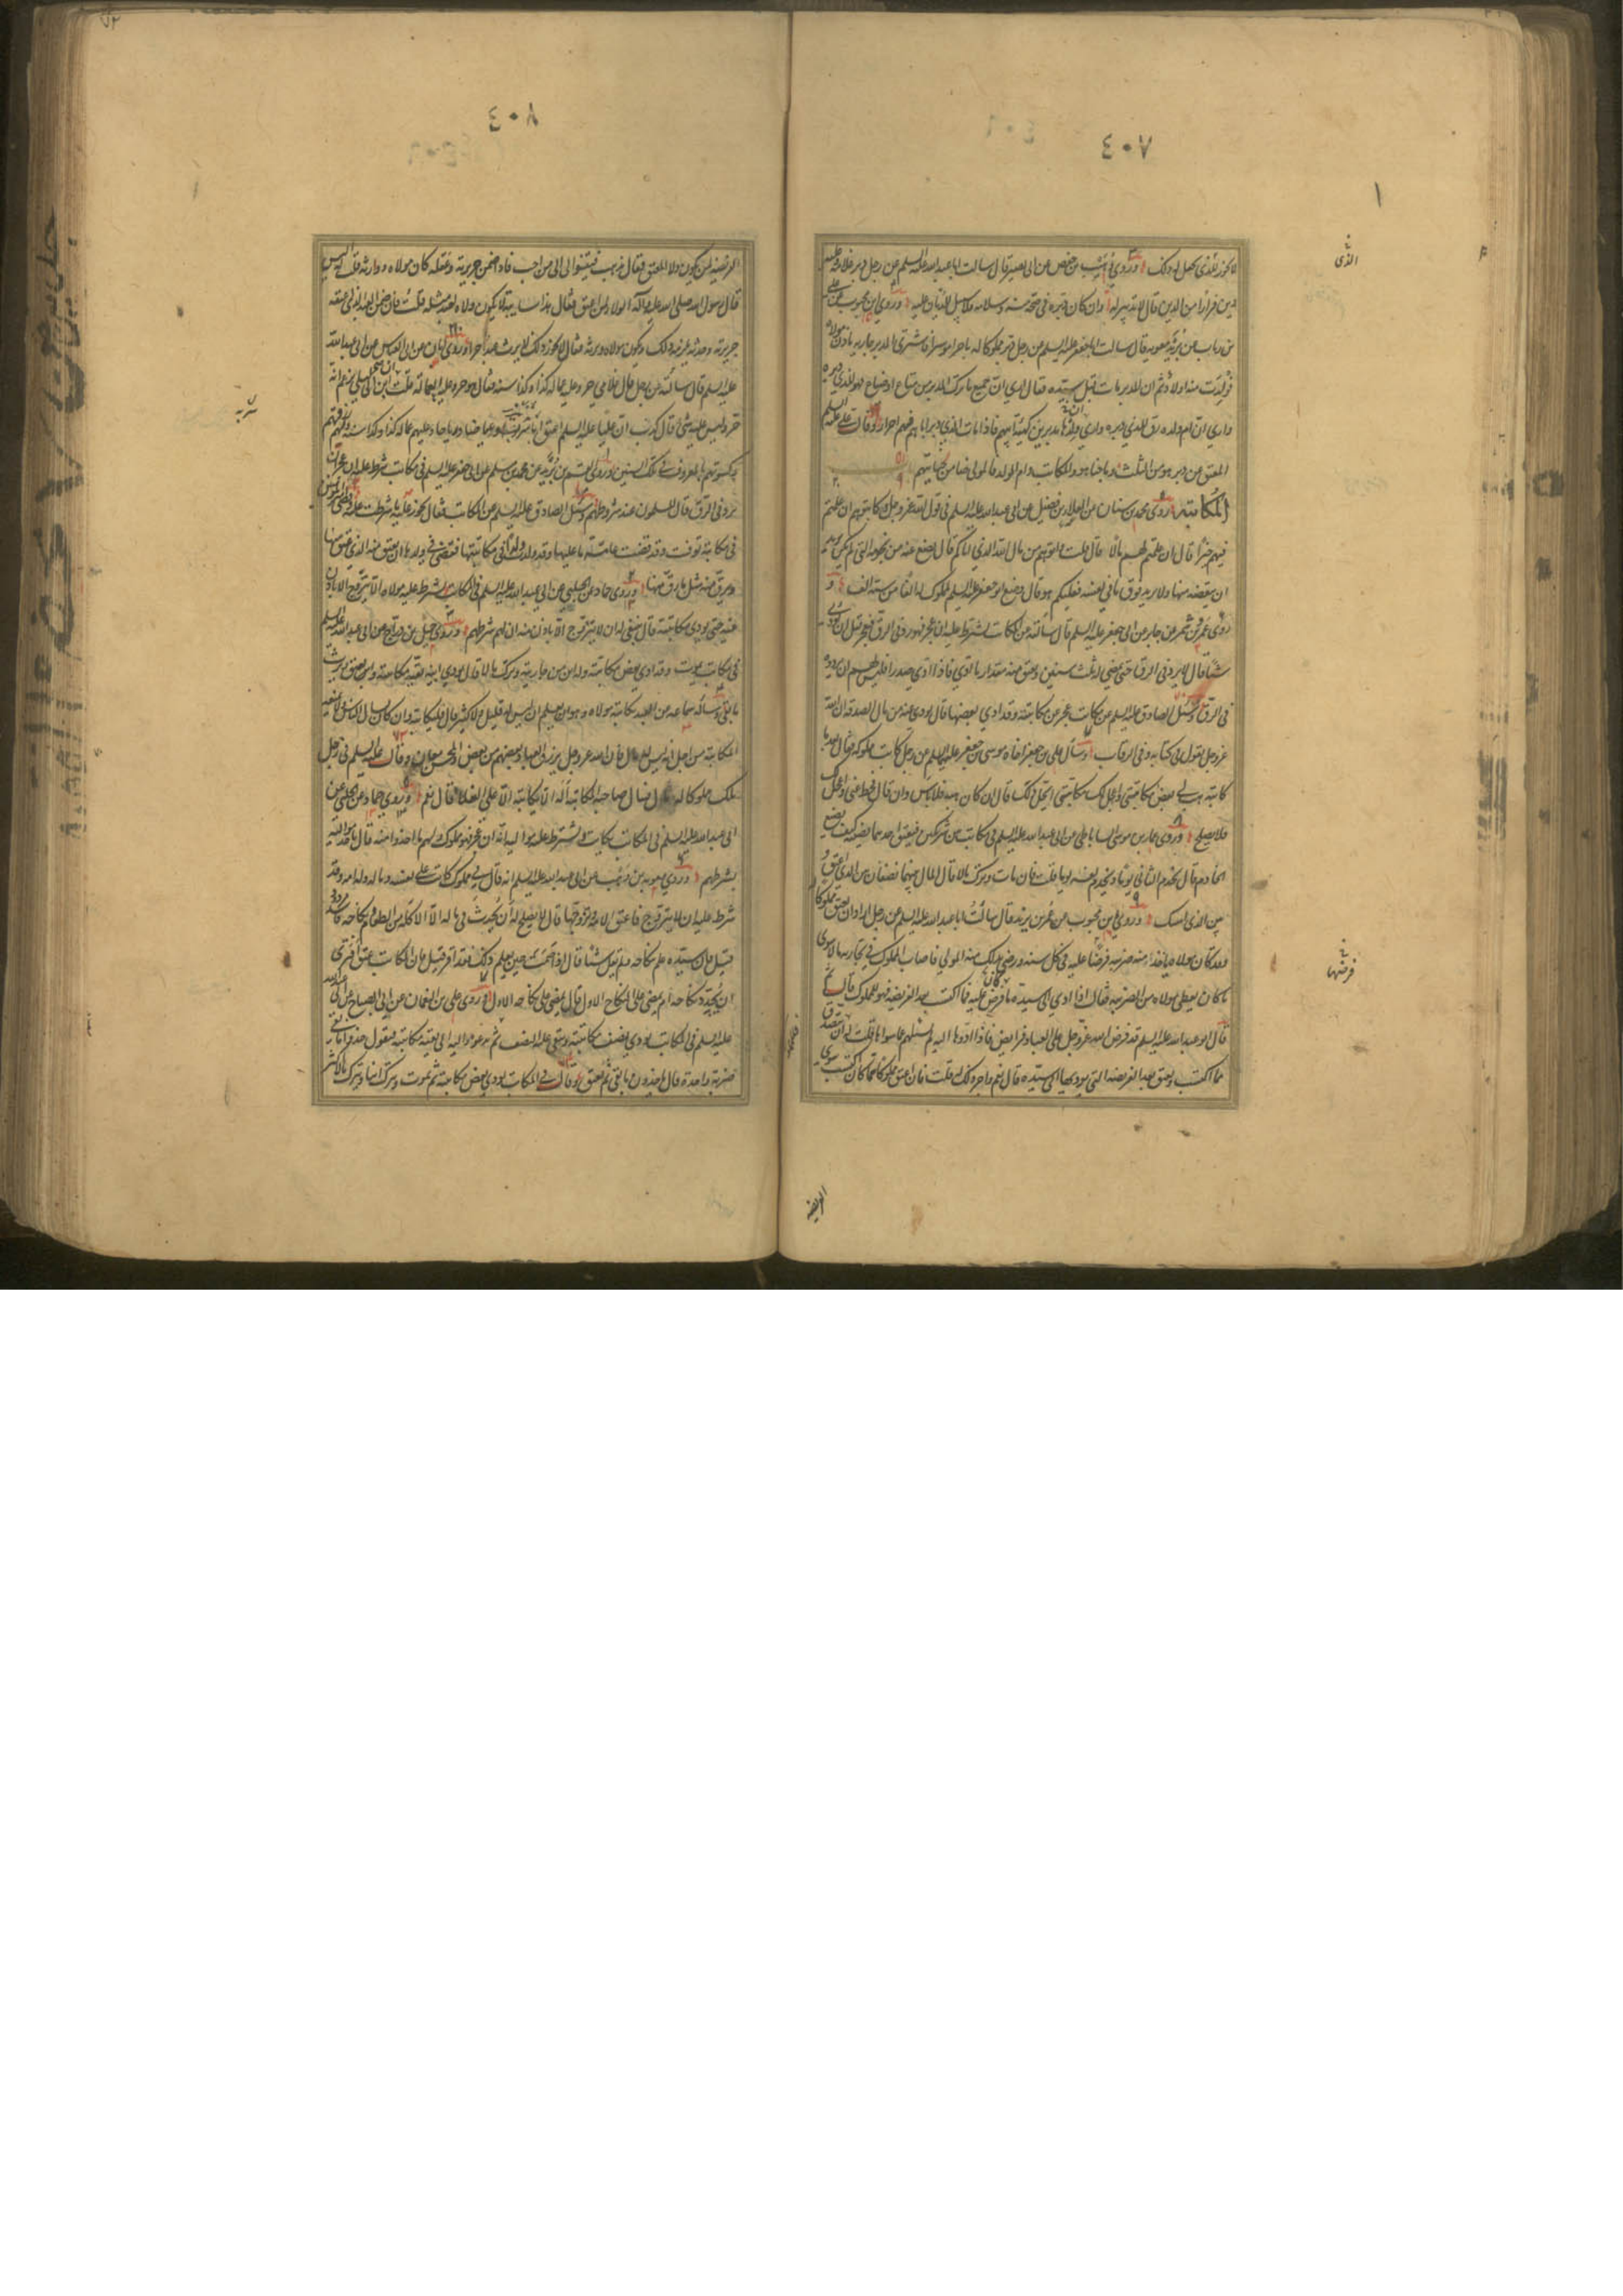 ٤٠٧
١
الذي
لا يجوز للذي يجعل له ذلك وروي وهيب بن حفص عن ابي بصير قال سالت ابا عبد الله عليه السلم عن رجل دبر غلامه وعليه
دين فرارا من الدين قال لا تدبير له وان كان دبره في صحة منه وسلامة فلا سبيل للديان عليه وروي ابن محبوب عن علي
بن رياب عن بريد بن معوية قال سالت ابا جعفر عليه السلم عن رجل دبر مملوكا له تاجرا موسرا فاشترى المدبر جارية باذن مولاه
فولدت منه اولادا ثم ان المدبر مات قبل سيده فقال ارى ان جميع ما ترك المدبر من متاع او ضياع فهو للذي دبره
وارى ان ام ولده رق للذي دبره وارى ان ولدها مدبرين كهيئة ابيهم فاذا مات الذي دبر اباهم فهم احرار وقال علي عليه السلم
المعتق عن دبر هو من الثلث وما جنا هو والمكاتب وام الولد فالمولى ضامن لجنايتهم
المكاتبة روى محمد بن سنان عن العلاء بن فضيل عن ابي عبد الله عليه السلم في قول الله عز وجل فكاتبوهم ان علمتم
فيهم خيرا قال ان علمتم لهم مالا قال قلت واتوهم من مال الله الذي اتاكم قال تضع عنه من نجومه التي لم تكن تريد
ان تنقصه منها ولا تريد فوق ما في نفسك فقلت كم هو قال وضع ابو جعفر عليه السلم لمملوك له الفا من ستة الف و
روى عمرو بن شمر عن جابر عن ابي جعفر عليه السلم قال سالته عن المكاتب يشترط عليه ان عجز فهو رد في الرق فعجز قبل ان يودي
شيئا قال لا يرد في الرق حتى يمضي له ثلث سنين ويعتق منه مقدار ما ادى فاذا ادى صدرا فليس لهم ان يردوه
في الرق وسئل الصادق عليه السلم عن مكاتب عجز عن مكاتبته وقد ادى بعضها قال يودى عنه من مال الصدقة ان الله
عز وجل يقول في كتابه وفي الرقاب وسال علي بن جعفر اخاه موسى بن جعفر عليه السلم عن رجل كاتب مملوكه فقال بعد ما
كاتبه هب لي بعض مكاتبتي واعجل لك مكاتبتي ايحل ذلك قال ان كان هبة فلا باس وان قال تحط عني واعجل لك
فلا يصلح وروى عمار بن موسى الساباطي عن ابي عبد الله عليه السلم في مكاتب بين شريكين فيعتق احدهما نصيبه كيف يصنع
الخادم قال يخدم الثاني يوما ويخدم نفسه يوما قلت فان مات وترك مالا قال المال بينهما نصفان بين الذي اعتق و
بين الذي امسك وروى ابن محبوب عن عمر بن يزيد قال سالت ابا عبد الله عليه السلم عن رجل اراد ان يعتق مملوكا له
وقد كان مولاه ياخذ منه ضريبة فرضها عليه في كل سنة ورضي بذلك منه المولى فاصاب المملوك في تجارته مالا سوى
فرضها
ما كان يعطي مولاه من الضريبة فقال اذا ادى الى سيده ما كان فرض عليه فما اكتسب بعد الفريضة فهو للمملوك قال ثم
قال ابو عبد الله عليه السلم قد فرض الله عز وجل على العباد فرايض فاذا ادوها اليه لم يسئلهم عما سواها قلت له ان يتصدق
مما اكتسب ويعتق بعد الفريضة التي يوديها الى سيده قال نعم واجر ذلك له قلت فان اعتق مملوكا مما كان اكتسب سوى
الفريضة
٤٠٨
الفريضة لمن يكون ولاء المعتق فقال يذهب فيتوالى الى من احب فاذا ضمن جريرته وعقله كان مولاه ووارثه قلت له اليس
قال رسول الله صلى الله عليه واله الولاء لمن اعتق فقال هذا سايبة لا يكون ولاؤه لعبد مثله قلت فان ضمن العبد الذي اعتقه
جريرته وحدثه يلزمه ذلك ويكون مولاه ويرثه فقال لا يجوز ذلك ولا يرث عبد حرا وروى ابان عن ابي العباس عن ابي عبد الله
عليه السلم قال سالته عن رجل قال غلامي حر وعليه عمالة كذا وكذا سنة فقال هو حر وعليه العمالة قلت ان ابن ابي ليلى يزعم انه
حر وليس عليه شيء قال كذب ان عليا عليه السلم اعتق ابا نيزر وعياضا ورياحا وعليهم عمالة كذا وكذا سنة ورزقهم
وكسوتهم بالمعروف في تلك السنين وروى القسم بن بريد عن محمد بن مسلم عن ابي جعفر عليه السلم في مكاتب شرط عليه ان عجز ان
يرد في الرق قال المسلمون عند شروطهم وسئل الصادق عليه السلم عن المكاتب فقال يجوز عليه ما شرطت عليه وقضى امير المومنين
في مكاتبة توفيت وقد قضت عامة ما عليها وقد ولدت ولدا في مكاتبتها فقضى في ولدها ان يعتق منه الذي عتق منها
ويرق منه مثل ما رق منها وروى حماد عن الحلبي عن ابي عبد الله عليه السلم في المكاتب يشترط عليه مولاه الا يتزوج الا باذن
منه حتى يودي مكاتبته قال ينبغي له ان لا يتزوج الا باذن منه ان لهم شرطهم وروى جميل بن دراج عن ابي عبد الله عليه السلم
في مكاتب يموت وقد ادى بعض مكاتبته وله ابن من جارية وترك مالا قال يودي ابنه بقية مكاتبته ويعتق ويرث
ما بقي وساله سماعة عن العبد يكاتبه مولاه وهو يعلم ان ليس له قليل ولا كثير قال فليكاتبه وان كان يسال الناس ولا يمنعه
المكاتبة من اجل انه ليس له مال فان الله عز وجل يرزق العباد بعضهم من بعض والمحسن معان وقال عليه السلم في رجل
ملك مملوكا له مال فسال صاحبه المكاتبة اله الا يكاتبه الا على الغلاء قال نعم وروى حماد عن الحلبي عن
ابي عبد الله عليه السلم في المكاتب يكاتب ويشترط عليه مواليه انه ان عجز فهو مملوك ولهم ما اخذوا منه قال ياخذه مواليه
بشرطهم وروى معوية بن وهب عن ابي عبد الله عليه السلم انه قال في مملوك كاتب على نفسه وماله وله امة وقد
شرط عليه ان لا يتزوج فاعتق الامة وتزوجها قال لا يصلح له ان يحدث في ماله الا الاكلة من الطعام ونكاحه فاسد مردود
قيل فان سيده علم بنكاحه ولم يقل شيئا قال اذا صمت حين يعلم ذلك فقد اقر قيل فان المكاتب عتق افترى
ان يجدد نكاحه ام يمضي على النكاح الاول قال يمضي على نكاحه الاول وروى علي بن النعمان عن ابي الصباح عن ابي عبد الله
عليه السلم في المكاتب يودي نصف مكاتبته ويبقى عليه النصف ثم يدعو مواليه الى بقية مكاتبته فيقول خذوا ما بقي
ضربة واحدة قال ياخذون ما بقي ثم يعتق وقال في المكاتب يودي بعض مكاتبته ثم يموت ويترك ابنا ويترك مالا اكثر